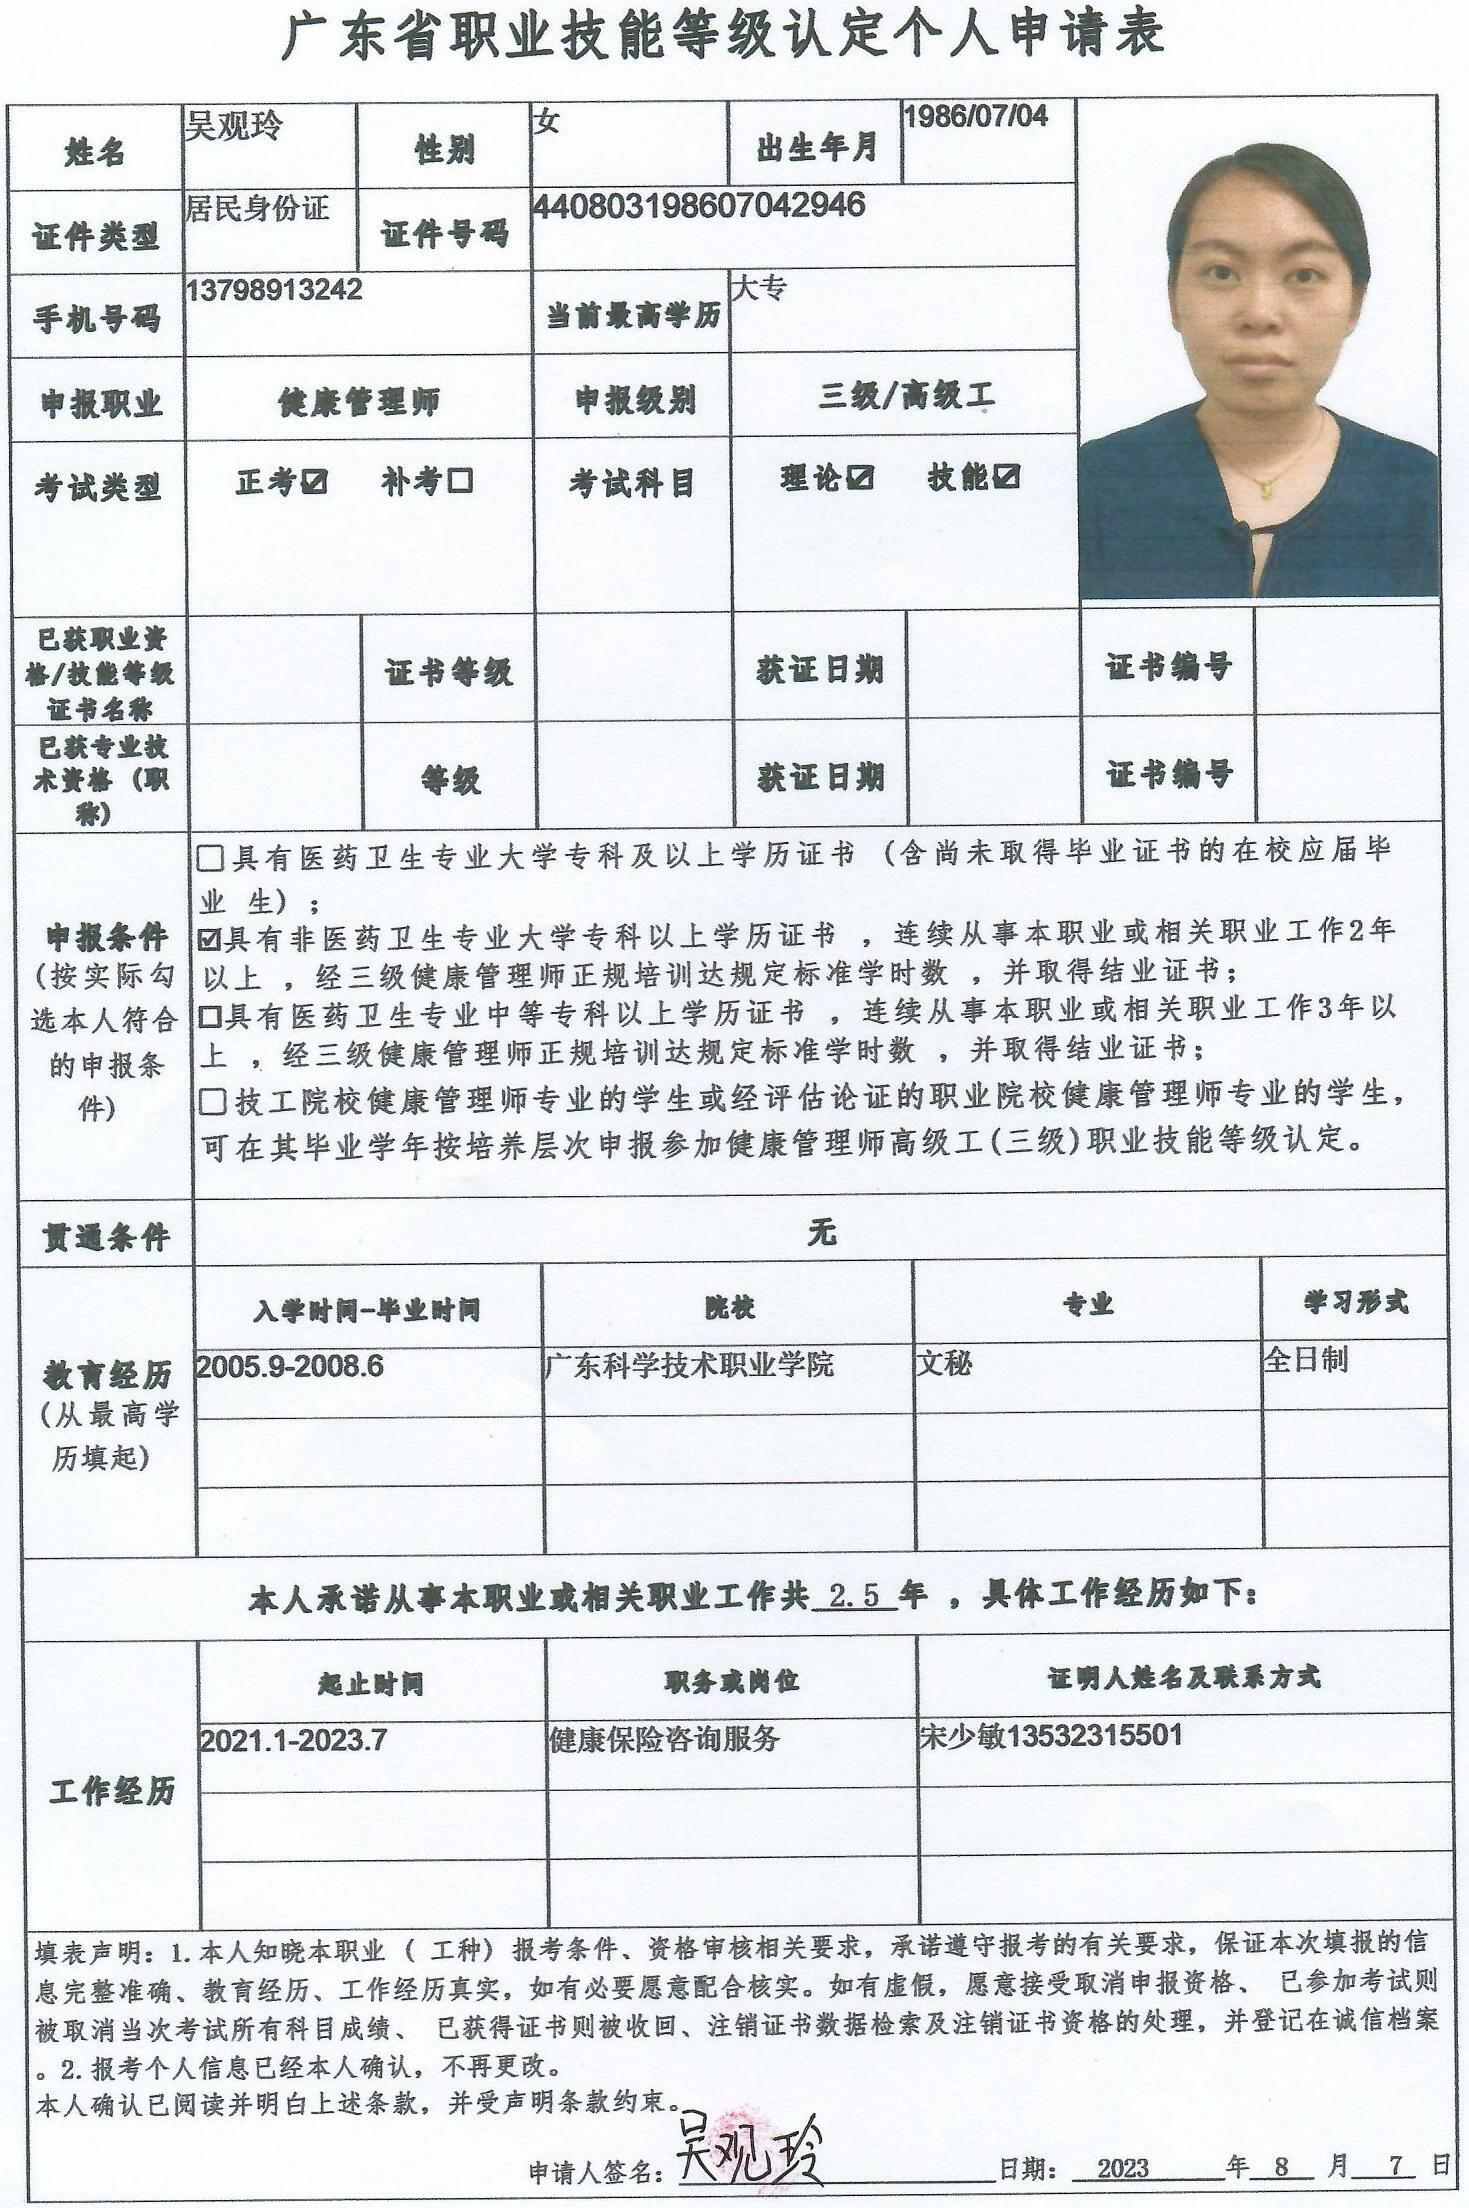 广东省职业技能等级认定个人申请表
姓名 吴观玲 性别 女 出生年月 1986/07/04
证件类型 居民身份证 证件号码 440803198607042946
手机号码 13798913242 当前最高学历 大专
申报职业 健康管理师 申报级别 三级/高级工
考试类型 正考☑ 补考☐ 考试科目 理论☑ 技能☑
已获职业资
格/技能等级 证书等级 获证日期 证书编号
证书名称
已获专业技
术资格（职 等级 获证日期 证书编号
称）
申报条件
(按实际勾
选本人符合
的申报条
件)
☐具有医药卫生专业大学专科及以上学历证书（含尚未取得毕业证书的在校应届毕
业 生）；
☑具有非医药卫生专业大学专科以上学历证书 ，连续从事本职业或相关职业工作2年
以上 ，经三级健康管理师正规培训达规定标准学时数 ，并取得结业证书；
☐具有医药卫生专业中等专科以上学历证书 ，连续从事本职业或相关职业工作3年以
上 ，经三级健康管理师正规培训达规定标准学时数 ，并取得结业证书；
☐技工院校健康管理师专业的学生或经评估论证的职业院校健康管理师专业的学生，
可在其毕业学年按培养层次申报参加健康管理师高级工(三级)职业技能等级认定。
贯通条件 无
教育经历
(从最高学
历填起)
入学时间-毕业时间 院校 专业 学习形式
2005.9-2008.6 广东科学技术职业学院 文秘 全日制
本人承诺从事本职业或相关职业工作共 2.5 年 ，具体工作经历如下：
工作经历
起止时间 职务或岗位 证明人姓名及联系方式
2021.1-2023.7 健康保险咨询服务 宋少敏13532315501
填表声明：1.本人知晓本职业（ 工种）报考条件、资格审核相关要求，承诺遵守报考的有关要求，保证本次填报的信
息完整准确、教育经历、工作经历真实，如有必要愿意配合核实。如有虚假，愿意接受取消申报资格、 已参加考试则
被取消当次考试所有科目成绩、 已获得证书则被收回、注销证书数据检索及注销证书资格的处理，并登记在诚信档案
。2.报考个人信息已经本人确认，不再更改。
本人确认已阅读并明白上述条款，并受声明条款约束。
申请人签名：吴观玲 日期： 2023 年 8 月 7 日